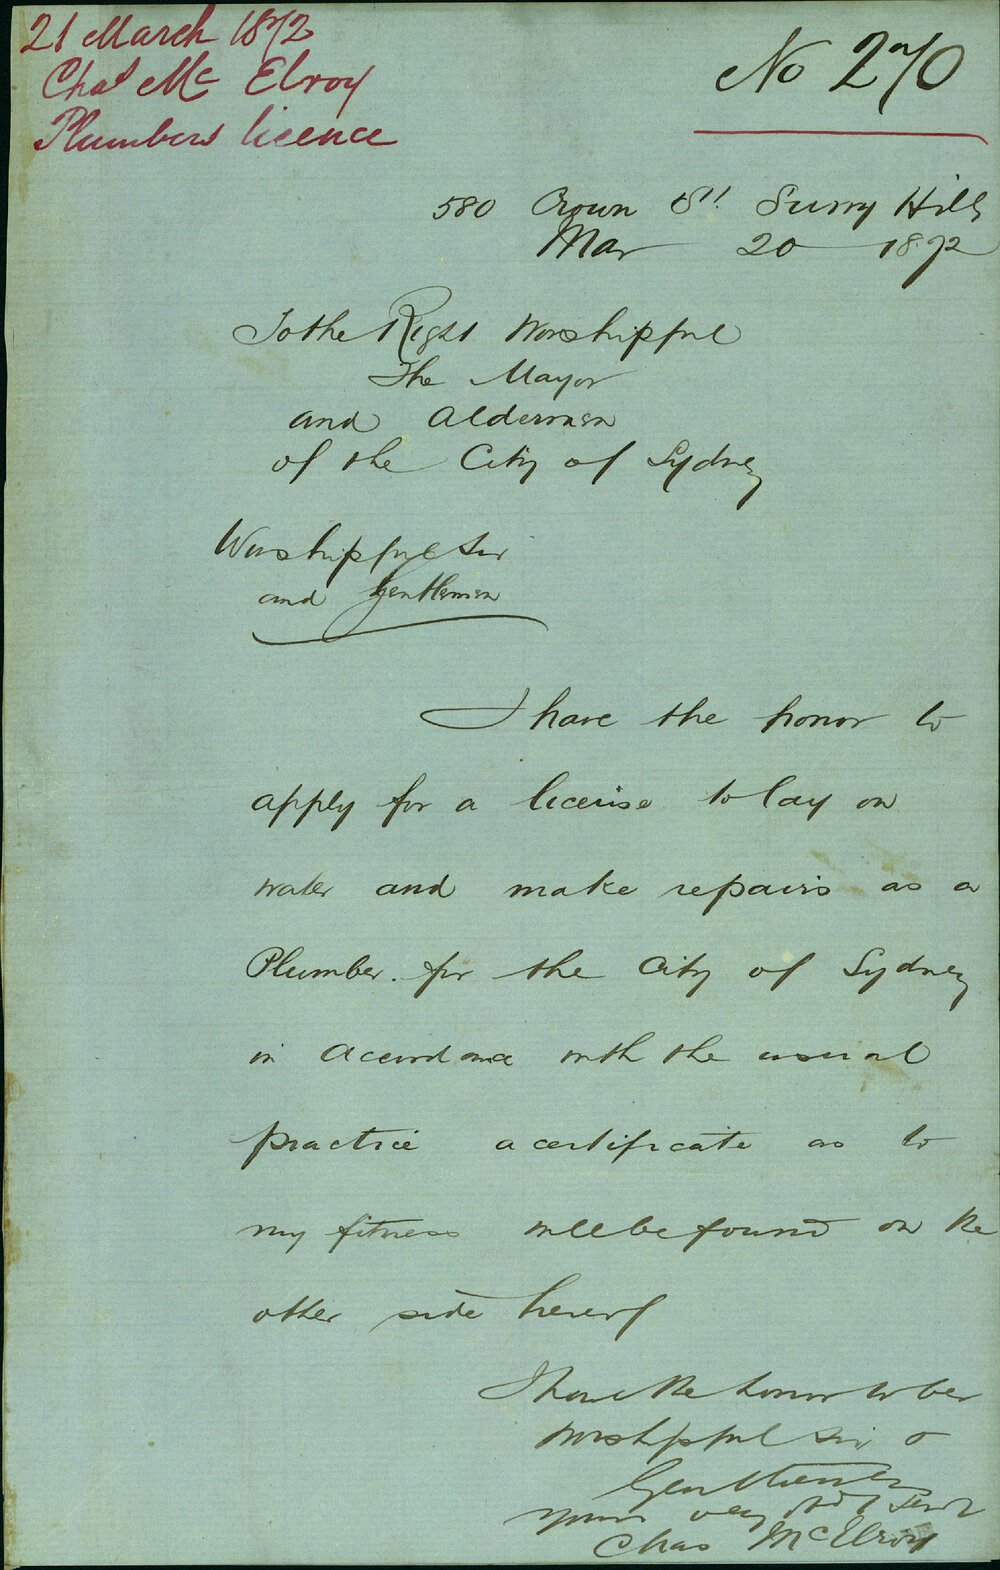 21 March 1872
Chas Mc Elroy
Plumbers licence
No 270
580 Crown St. Surry Hills
Mar 20 1872
To the Right Worshipful
The Mayor
and Aldermen
of the City of Sydney
Worshipful Sir
and Gentlemen
I have the honor to
apply for a license to lay on
water and make repairs as a
Plumber. for the City of Sydney
in accordance with the usual
practice a certificate as to
my fitness will be found on the
other side hereof
I have the honor to be
Worshipful Sir &
Gentlemen
Yours very Obdt Servt
Chas McElroy